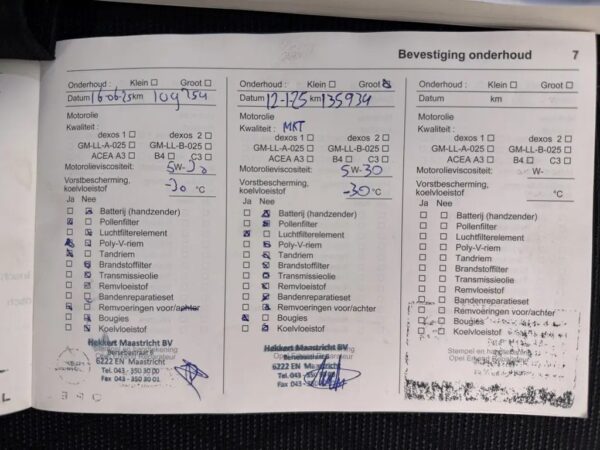 Bevestiging onderhoud 7
Onderhoud : Klein Groot
Datum 16-06-25 km 109754
Motorolie
Kwaliteit :
dexos 1 dexos 2
GM-LL-A-025 GM-LL-B-025
ACEA A3 B4 C3
Motorolieviscositeit: 5W-30
Vorstbescherming,
koelvloeistof -30 °C
Ja Nee
Batterij (handzender)
Pollenfilter
Luchtfilterelement
Poly-V-riem
Tandriem
Brandstoffilter
Transmissieolie
Remvloeistof
Bandenreparatieset
Remvoeringen voor/achter
Bougies
Koelvloeistof
Hekkert Maastricht BV
Stempel en handtekening
Bersebastraat 6
6222 EN Maastricht
Tel. 043 - 350 80 00
Fax 043 - 350 80 01
Onderhoud : Klein Groot
Datum 12-1-25 km 135934
Motorolie
Kwaliteit : MKT
dexos 1 dexos 2
GM-LL-A-025 GM-LL-B-025
ACEA A3 B4 C3
Motorolieviscositeit: 5W-30
Vorstbescherming,
koelvloeistof -30 °C
Ja Nee
Batterij (handzender)
Pollenfilter
Luchtfilterelement
Poly-V-riem
Tandriem
Brandstoffilter
Transmissieolie
Remvloeistof
Bandenreparatieset
Remvoeringen voor/achter
Bougies
Koelvloeistof
Hekkert Maastricht BV
6222 EN
Tel. 043 -
Fax 043 -
Onderhoud : Klein Groot
Datum km
Motorolie
Kwaliteit :
dexos 1 dexos 2
GM-LL-A-025 GM-LL-B-025
ACEA A3 B4 C3
Motorolieviscositeit: W-
Vorstbescherming,
koelvloeistof °C
Ja Nee
Batterij (handzender)
Pollenfilter
Luchtfilterelement
Poly-V-riem
Tandriem
Brandstoffilter
Transmissieolie
Remvloeistof
Bandenreparatieset
Remvoeringen voor/achter
Bougies
Koelvloeistof
Stempel en handtekening
Opel Erkend Reparateur